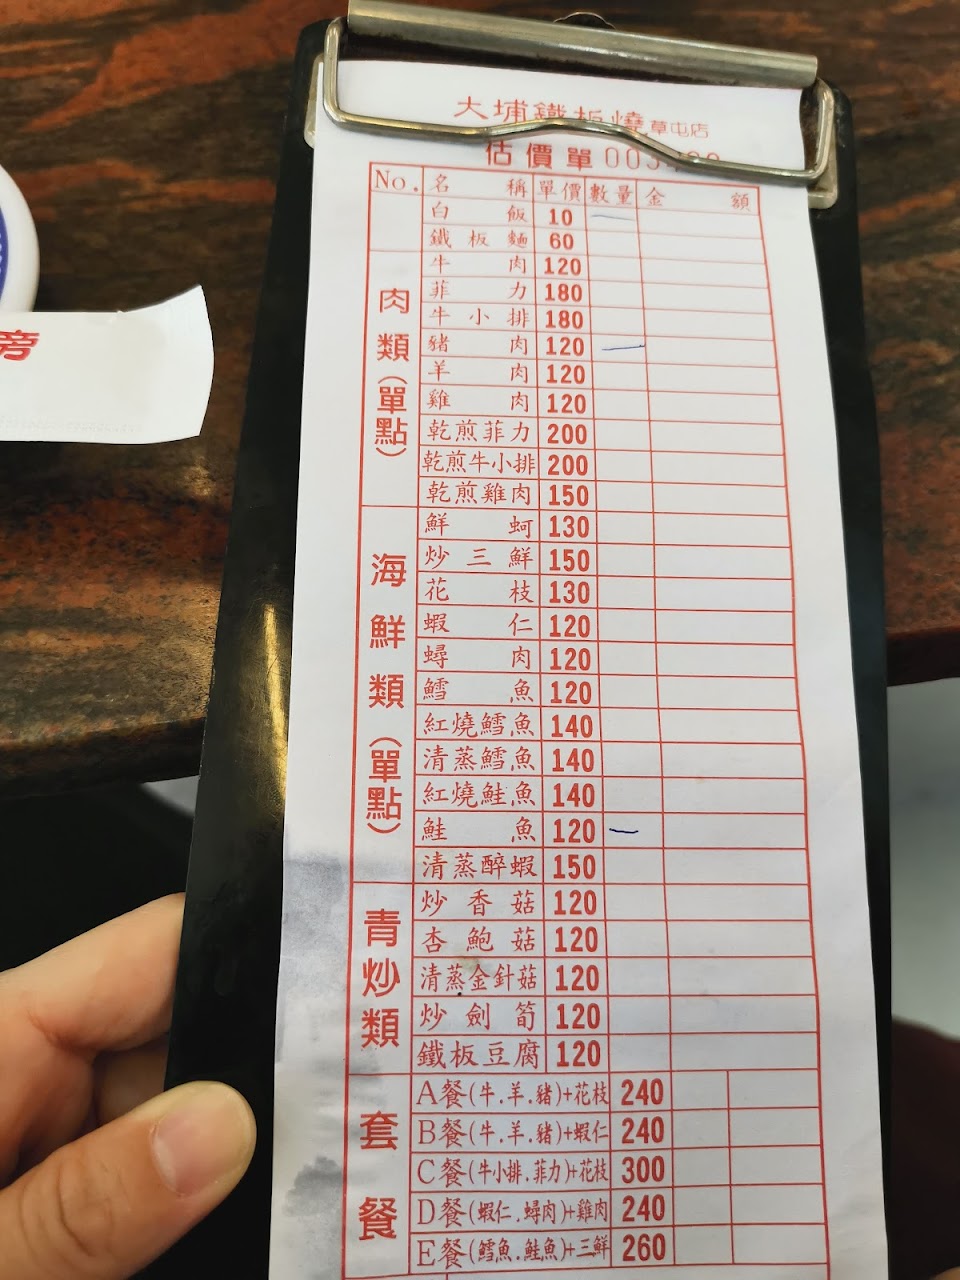 大埔鐵板燒草屯店
估價單
No. 名稱 單價 數量 金額
白飯 10 一
鐵板麵 60
肉類(單點)
牛肉 120
菲力 180
牛小排 180
豬肉 120 一
羊肉 120
雞肉 120
乾煎菲力 200
乾煎牛小排 200
乾煎雞肉 150
海鮮類(單點)
鮮蚵 130
炒三鮮 150
花枝 130
蝦仁 120
蟳肉 120
鱈魚 120
紅燒鱈魚 140
清蒸鱈魚 140
紅燒鮭魚 140
鮭魚 120 一
清蒸醉蝦 150
青炒類
炒香菇 120
杏鮑菇 120
清蒸金針菇 120
炒劍筍 120
鐵板豆腐 120
套餐
A餐(牛.羊.豬)+花枝 240
B餐(牛.羊.豬)+蝦仁 240
C餐(牛小排.菲力)+花枝 300
D餐(蝦仁.蟳肉)+雞肉 240
E餐(鱈魚.鮭魚)+三鮮 260
旁